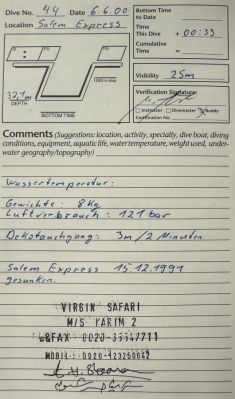 Dive No. 44 Date 6.6.00
Location Salem Express
Bottom Time
to Date
Time
This Dive + 00:33
Cumulative
Time =
SI PG
PG
DEEP STOP
32,1m
DEPTH
BOTTOM TIME
Visibility 25m
Verification Signature:
Instructor Divemaster Buddy
Certification No.
Comments (Suggestions: location, activity, specialty, dive boat, diving
conditions, equipment, aquatic life, water temperature, weight used, under-
water geography/topography)
Wassertemperatur:
Gewichte: 8kg
Luftverbrauch: 121 bar
Dekotauchgang: 3m/2 Minuten
Salem Express 15.12.1991
gesunken.
VIRGIN SAFARI
M/S KARIM 2
&FAX 0020-33547711
MOBIL: 0020-123250642